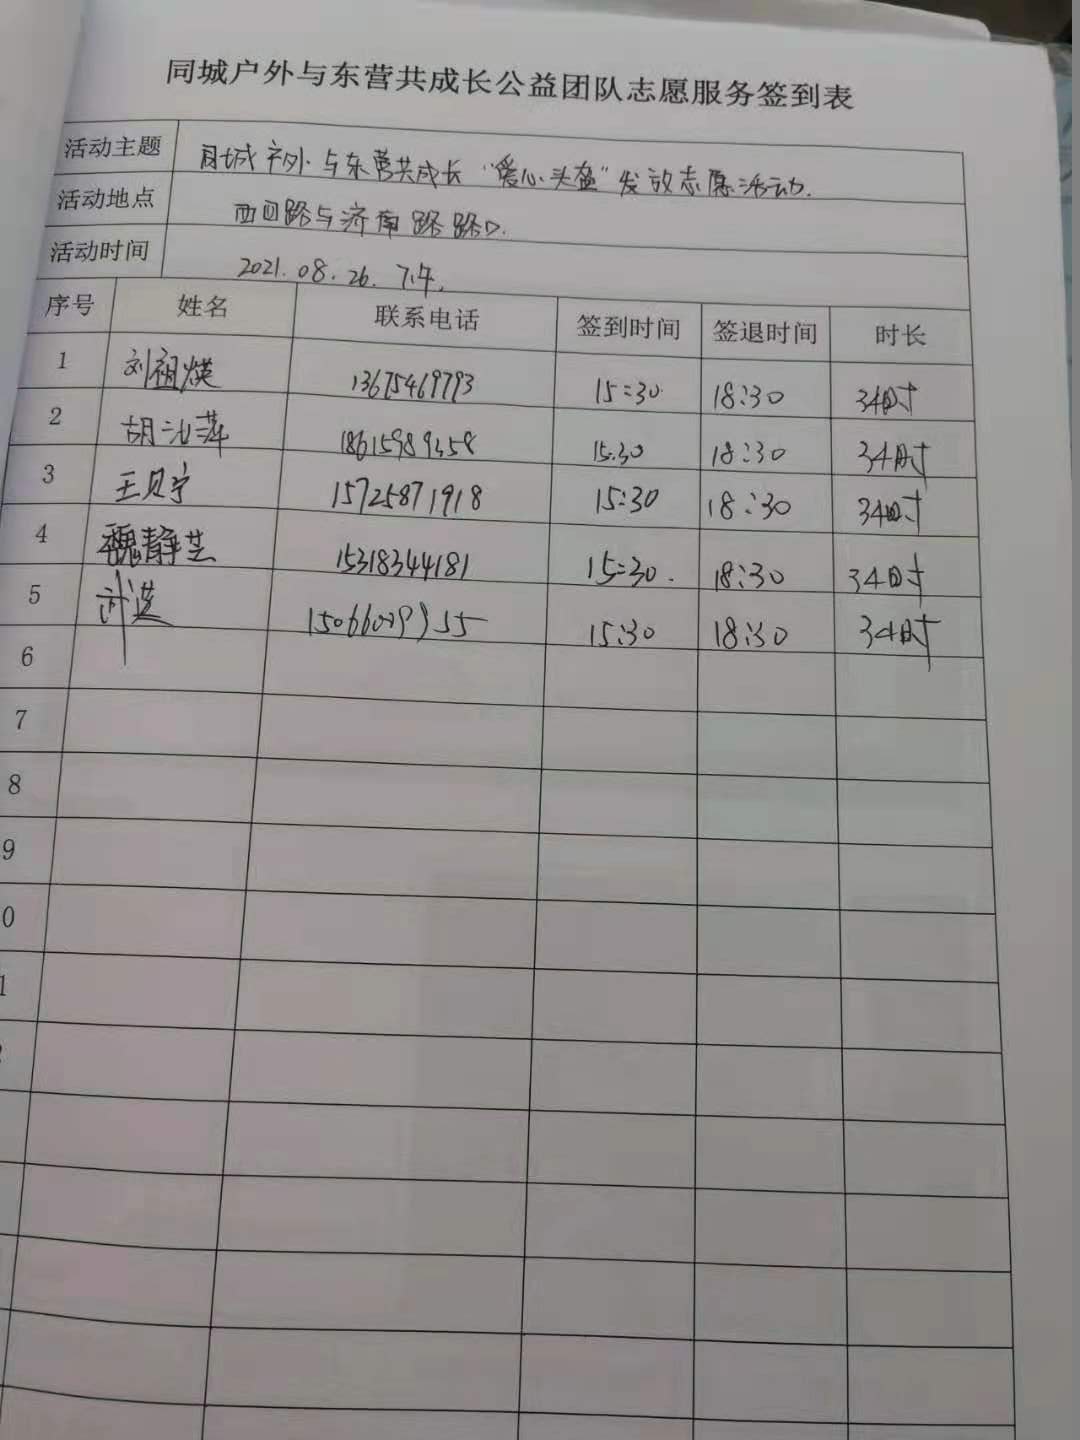 同城户外与东营共成长公益团队志愿服务签到表
活动主题 同城户外与东营共成长"爱心头盔"发放志愿活动.
活动地点 西四路与济南路路口.
活动时间 2021.08.26.下午.
序号 姓名 联系电话 签到时间 签退时间 时长
1 刘祖煐 13675469793 15:30 18:30 3小时
2 胡沁萍 18615989358 15:30 18:30 3小时
3 王贝宁 15725871918 15:30 18:30 3小时
4 魏静芸 15318344181 15:30. 18:30 3小时
5 15:30 18:30 3小时
6
7
8
9
0
1